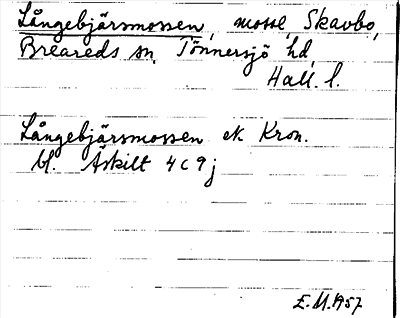 Långebjärsmossen, mosse, Skavbo,
Breareds sn, Tönnersjö hd,
Hall. l.
Långebjärsmossen ek. Kron.
bl. Åskilt 4 c 9 j
E.M. 1957